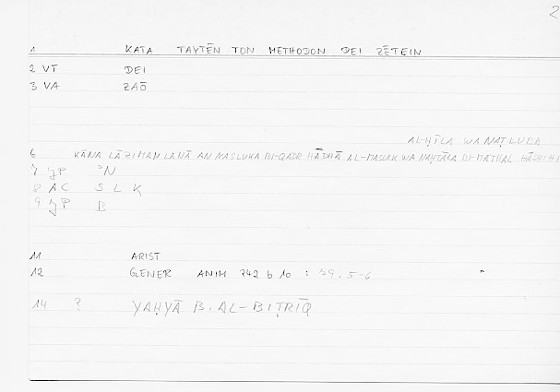 2
1 KATA TAYTĒN TON METHODON DEI ZĒTEIN
2 VT DEI
3 VA ZAŌ
AL-ḤĪLA WA NAṬLUBA
6 KĀNA LĀZIMAN LANĀ AN NASLUKA BI-QADR HĀDHĀ AL-MASLAK WA NAḤTĀLA BI-MATHAL HĀDHIHI
7 JP ʾN
8 AC S L K
9 JP B
11 ARIST
12 GENER ANIM 742 b 10 : 79.5-6
14 ? YAḤYĀ B. AL-BIṬRĪQ